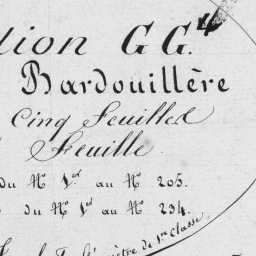 tion GG.
Bardouillère
Cinq Feuilles
Feuille
du N° 1er au N° 205.
du N° 1er au N° 234.
de 1re Classe